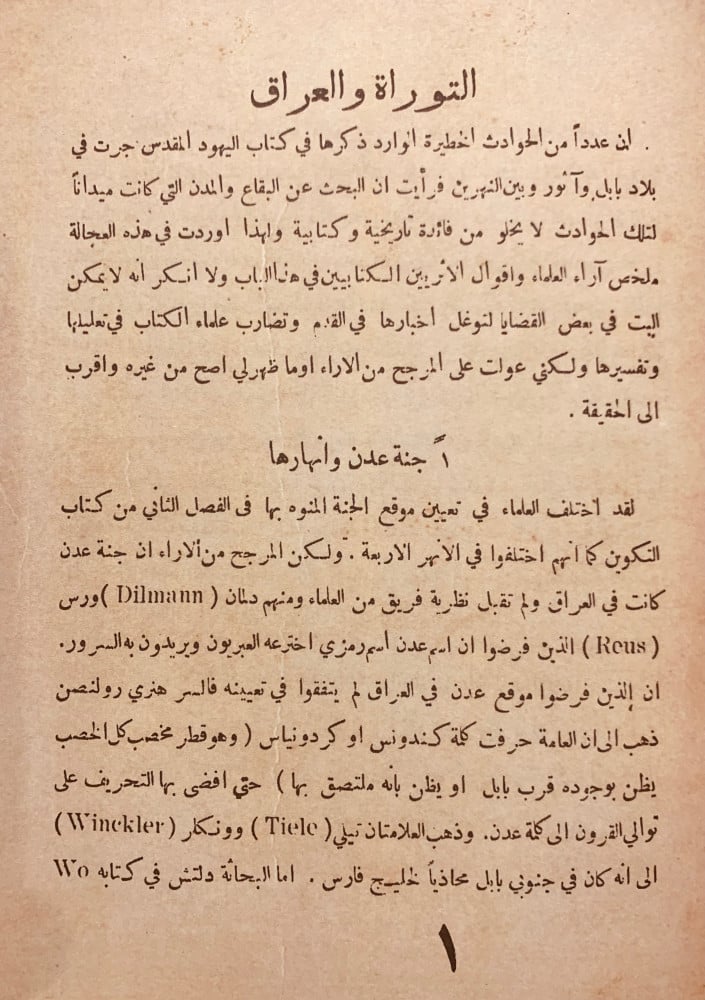 التوراة والعراق
. ان عدداً من الحوادث الخطيرة الوارد ذكرها في كتاب اليهود المقدس جرت في
بلاد بابل وآثور وبين النهرين فرأيت ان البحث عن البقاع والمدن التي كانت ميداناً
لتلك الحوادث لا يخلو من فائدة تاريخية وكتابية ولهذا اوردت في هذه العجالة
ملخص آراء العلماء واقوال الاثريين الكتابيين في هذا الباب ولا انكر انه لا يمكن
البت في بعض القضايا لتوغل أخبارها في القدم وتضارب علماء الكتاب في تعليلها
وتفسيرها ولكني عولت على المرجح من الاراء اوما ظهر لي اصح من غيره واقرب
الى الحقيقة .
١ً جنة عدن وأنهارها
لقد اختلف العلماء في تعيين موقع الجنة المنوه بها فى الفصل الثاني من كتاب
التكوين كما انهم اختلفوا في الانهر الاربعة . ولكن المرجح من ألاراء ان جنة عدن
كانت في العراق ولم تقبل نظرية فريق من العلماء ومنهم دلمان ( Dilmann ) ورس
( Reus ) الذين فرضوا ان اسم عدن أسم رمزي اخترعه العبريون ويريدون به السرور.
ان إلذين فرضوا موقع عدن في العراق لم يتفقوا في تعيينه فالسر هنري رولنصن
ذهب الى ان العامة حرفت كلمة كندونس او كردونياس ( وهو قطر مخصب كل الخصب
يظن بوجوده قرب بابل او يظن بأنه ملتصق بها ) حتي افضى بها التحريف على
توالي القرون الى كلمة عدن. وذهب العلامتان تيلي ( Tiele ) وونكلر ( Winckler )
الى انه كان في جنوبي بابل محاذياً لخليج فارس . اما البحاثة دلتش في كتابه Wo
١